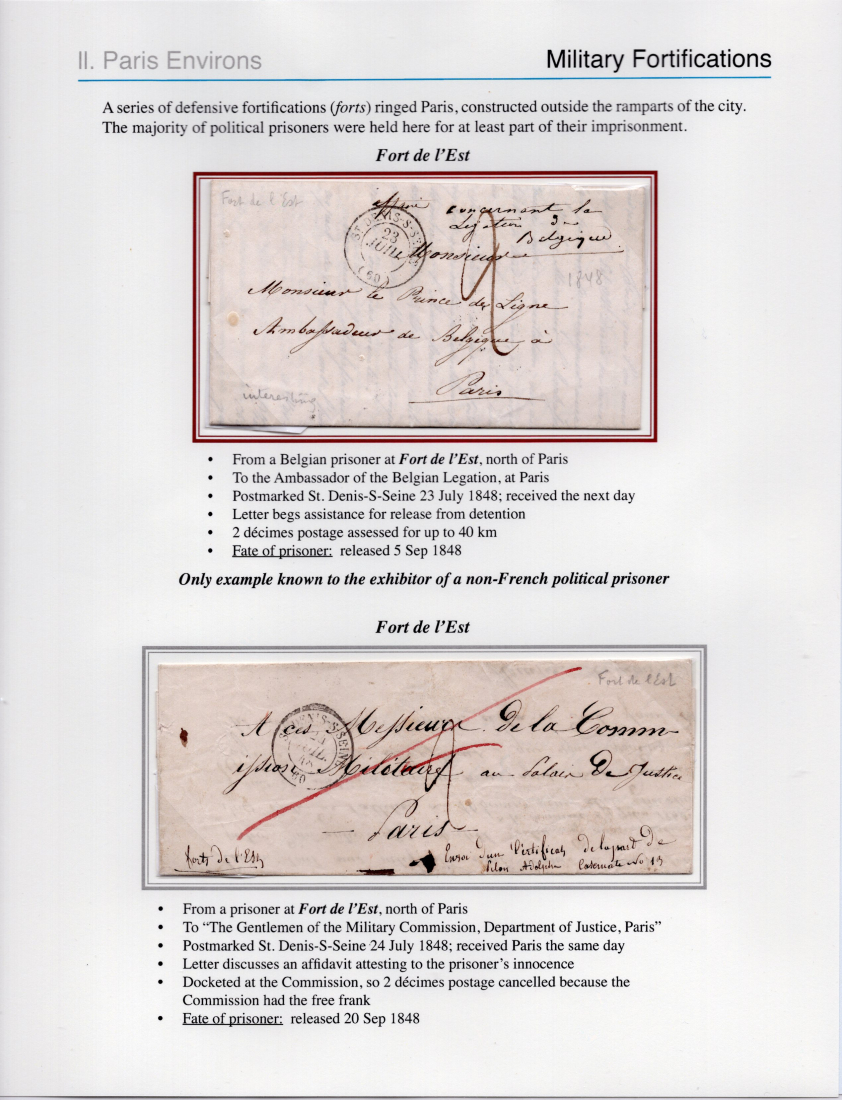 II. Paris Environs
Military Fortifications
A series of defensive fortifications (forts) ringed Paris, constructed outside the ramparts of the city.
The majority of political prisoners were held here for at least part of their imprisonment.
Fort de l'Est
Fort de l'Est
concernant la
Légation de
Belgique
ST DENIS-S-SEINE
23
JUIL
(60)
Monsieur
1848
Monsieur le Prince de Ligne
Ambassadeur de Belgique à
Paris
interesting
• From a Belgian prisoner at Fort de l'Est, north of Paris
• To the Ambassador of the Belgian Legation, at Paris
• Postmarked St. Denis-S-Seine 23 July 1848; received the next day
• Letter begs assistance for release from detention
• 2 décimes postage assessed for up to 40 km
• Fate of prisoner: released 5 Sep 1848
Only example known to the exhibitor of a non-French political prisoner
Fort de l'Est
Fort de l'Est
ST DENIS-S-SEINE
(60)
A ces Messieurs de la Comm-
ission Militaire au Palais De Justice
Paris
forts De l'Est
Envoi D'un Certificat de la part de
Adolphe Casemate No 13
• From a prisoner at Fort de l'Est, north of Paris
• To “The Gentlemen of the Military Commission, Department of Justice, Paris”
• Postmarked St. Denis-S-Seine 24 July 1848; received Paris the same day
• Letter discusses an affidavit attesting to the prisoner's innocence
• Docketed at the Commission, so 2 décimes postage cancelled because the
Commission had the free frank
• Fate of prisoner: released 20 Sep 1848